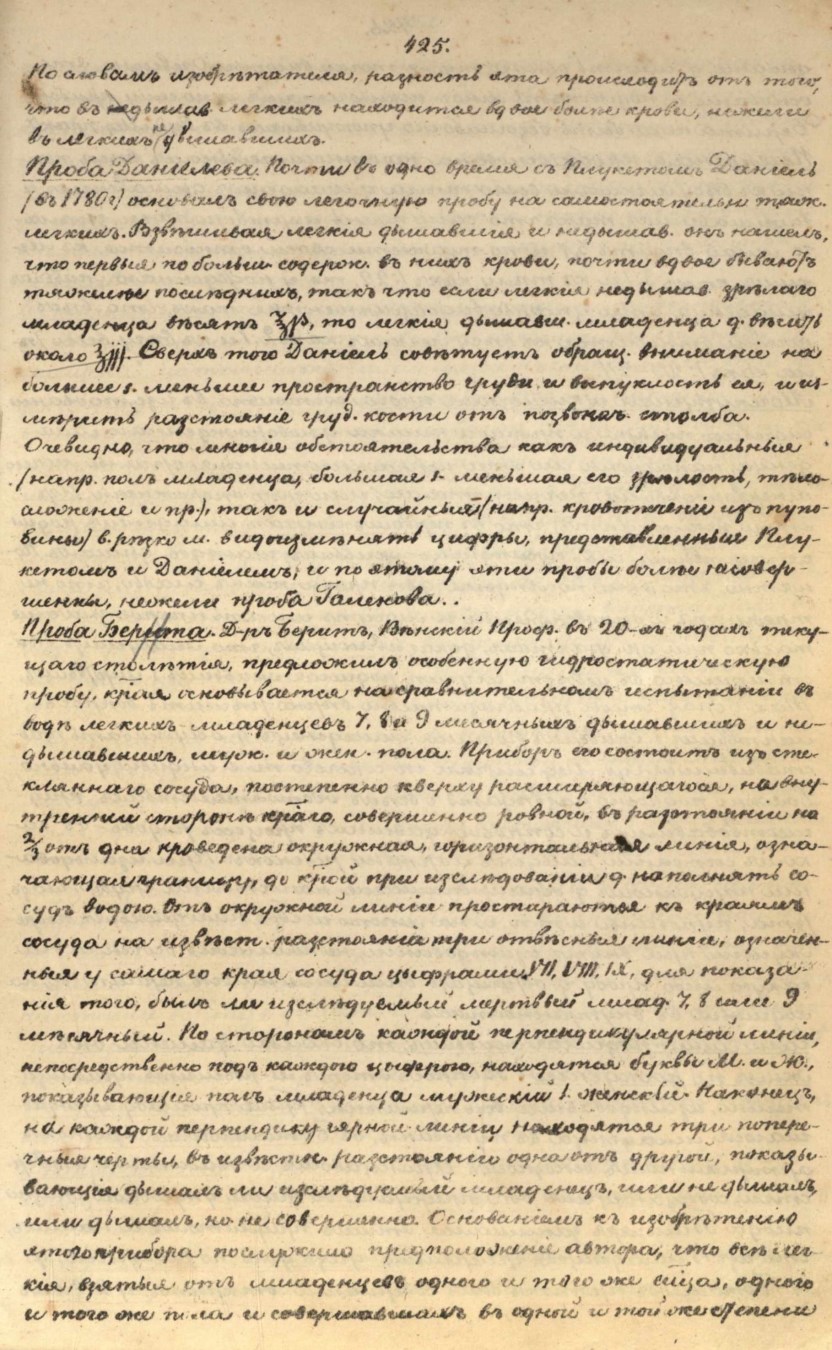 425.
По словамъ изобрѣтателя, разность эта происходитъ отъ того,
что въ недышав легкихъ находится вдвое болѣе крови, нежели
въ легкихъ не дышавшихъ.
Проба Данилева. Почти въ одно время съ Плукетомъ Даніель
(въ 1780 г) основалъ свою легочную пробу на самостоятельн тяж.
легкихъ. Взвѣшивая легкія дышавшія и недышав. онъ нашелъ,
что первыя по больш. содерж. въ нихъ крови, почти вдвое бываютъ
тяжелѣе послѣднихъ, такъ что если легкія недышав. зрѣлаго
младенца вѣсятъ ℥jβ, то легкія дышавш. младенца д. вѣсить
около ℥jjj. Сверхъ того Даніель совѣтуетъ обращ. вниманіе на
большее s. меньшее пространство груди и выпуклость ея, и из-
мѣрить разстояніе груд. кости отъ позвоноч. столба.
Очевидно, что многія обстоятельства какъ индивидуальныя
(напр. полъ младенца, большая s. меньшая его зрѣлость, тѣло-
сложеніе и пр.), такъ и случайныя (напр. кровотеченіе изъ пупо-
вины) в. рѣзко м. видоизмѣнять цифры, представленныя Плу-
кетомъ и Даніелемъ; и по этому эти пробы болѣе несовер-
шенны, нежели проба Галенова..
Проба Бернта. Д-ръ Бернтъ, Вѣнскій Проф. въ 20-хъ годахъ теку-
щаго столѣтія, предложилъ особенную гидростатическую
пробу, края основывается на сравнительномъ испытаніи въ
водѣ легкихъ младенцевъ 7, 8 и 9 мѣсячныхъ дышавшихъ и не-
дышавшихъ, муж. и жен. пола. Приборъ его состоитъ изъ сте-
кляннаго сосуда, постепенно кверху расширяющагося, на вну-
тренней сторонѣ краго, совершенно ровной, въ разстояніи на
⅔ отъ дна проведена окружная, горизонтальная линія, озна-
чающая границу, до крой при изслѣдованіи д. наполнять со-
судъ водою. Отъ окружной линіи простираются къ краямъ
сосуда на извѣст. разстояніи три отвѣсныя линіи, означен-
ныя у самаго края сосуда цыфрами VII, VIII, IX, для показа-
нія того, былъ ли изслѣдуемый мертвый млад. 7, 8 или 9
мѣсячный. По сторонамъ каждой перпендикулярной линіи,
непосредственно подъ каждою цыфрою, находятся буквы М. и Ж.,
показывающія полъ младенца мужескій s. женскій. Наконецъ,
на каждой перпендикулярной линіи находятся три попере-
чныя черты, въ извѣстн. разстояніи одна отъ другой, показы-
вающія дышалъ ли изслѣдуемый младенецъ, или не дышалъ,
или дышалъ, но не совершенно. Основаніемъ къ изобрѣтенію
этого прибора послужило предположеніе автора, что всѣ лег-
кія, взятыя отъ младенцевъ одного и того же мѣсяца, одного
и того же пола и совершавшихъ въ одной и той же степени